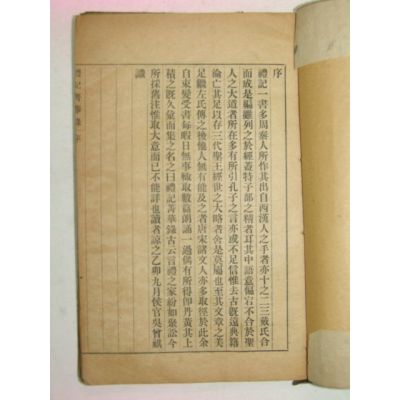 序
禮記一書多周秦人所作其出自西漢人之手者亦十之二三戴氏合
而成是編雖列之於經蓋特子部之精者耳其中語意偏宕不合於聖
人之大道者所在多有所引孔子之言亦或不足信惟去古旣遠典籍
淪亡其足以存三代聖王經世之大略者舍是莫屬也至其文章之美
足繼左氏傳之後他人無有能及之者唐宋諸文人亦多取徑於此余
自束髮受書每暇日無事輒取數篇朗誦一過偶有所得卽丹黃其上
積之旣久彙而集之名之曰禮記菁華錄古云言禮之家紛如聚訟今
所採舊注惟取大意而已不能詳也讀者諒之乙卯九月侯官吳曾祺
識
禮記菁華錄 序